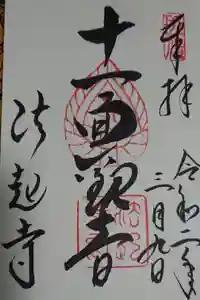 奉拝
令和二年
三月九日
十一面観音
法起寺